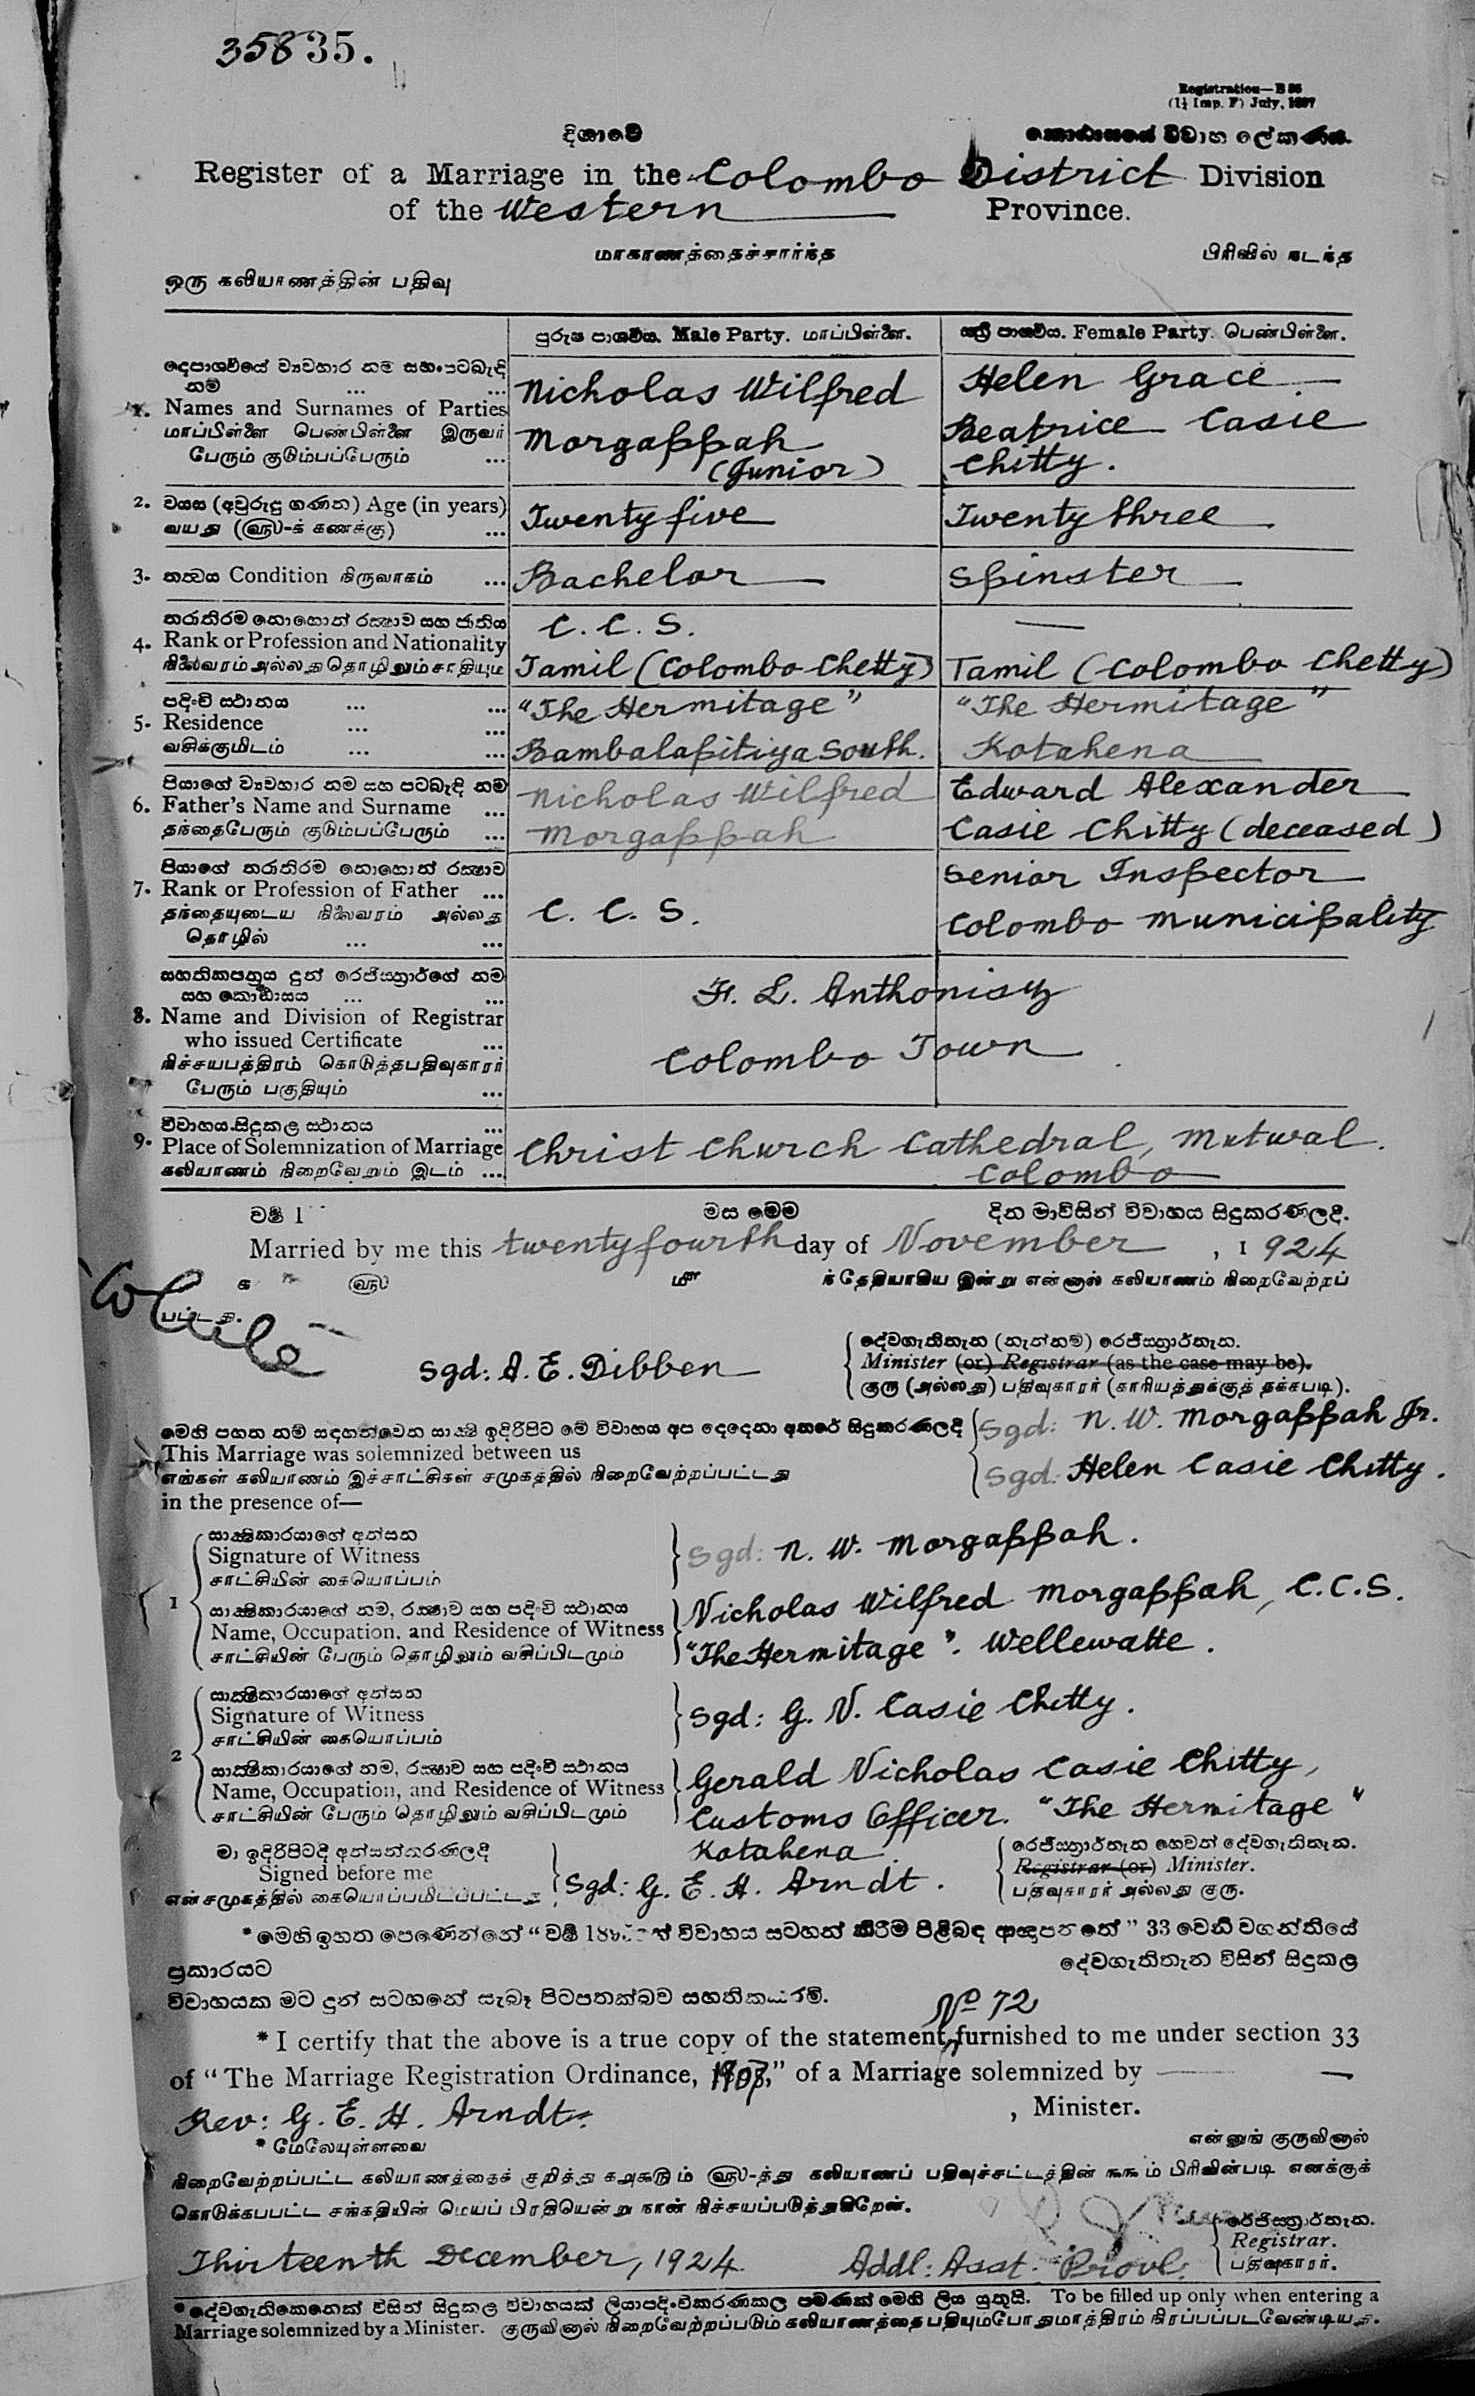 35835.
Registration—B 35
(1½ Imp. F) July, 1897
දිශාවේ කොට්ඨාසයේ විවාහ ලේකණය.
Register of a Marriage in the Colombo District Division
of the Western Province.
மாகாணத்தைச்சார்ந்த பிரிவில் நடந்த
ஒரு கலியாணத்தின் பதிவு
පුරුෂ පාශව්ය. Male Party. மாப்பிள்ளை. ස්ත්‍රී පාශව්ය. Female Party. பெண்பிள்ளை.
දෙපාශව්යේ ව්‍යවහාර නම සහ පටබැඳි
නම් ... ...
1. Names and Surnames of Parties
மாப்பிள்ளை பெண்பிள்ளை இருவர்
பேரும் குடும்பப்பேரும் ...
Nicholas Wilfred
Morgappah
(Junior)
Helen Grace
Beatrice Casie
Chitty.
2. වයස (අවුරුදු ගණන) Age (in years)
வயது (௵-க் கணக்கு) ...
Twenty five
Twenty three
3. තත්වය Condition நிருவாகம் ...
Bachelor
Spinster
තරාතිරම නොහොත් රක්ෂාව සහ ජාතිය
4. Rank or Profession and Nationality
நிலைவரம் அல்லது தொழிலும் சாதியும்
C. C. S.
Tamil (Colombo Chetty)
—
Tamil (Colombo Chetty)
පදිංචි ස්ථානය ... ...
5. Residence ... ...
வசிக்குமிடம் ... ...
"The Hermitage"
Bambalapitiya South.
"The Hermitage"
Kotahena
පියාගේ ව්‍යවහාර නම සහ පටබැඳි නම
6. Father's Name and Surname ...
தந்தைபேரும் குடும்பப்பேரும் ...
Nicholas Wilfred
Morgappah
Edward Alexander
Casie Chitty (deceased)
පියාගේ තරාතිරම නොහොත් රක්ෂාව
7. Rank or Profession of Father ...
தந்தையுடைய நிலைவரம் அல்லது
தொழில் ... ...
C. C. S.
Senior Inspector
Colombo Municipality
සහතිකපත්‍රය දුන් රෙජිස්ත්‍රාර්ගේ නම
සහ කොට්ඨාසය ... ...
8. Name and Division of Registrar
who issued Certificate ...
நிச்சயபத்திரம் கொடுத்தபதிவுகாரர்
பேரும் பகுதியும் ...
F. L. Anthonisz
Colombo Town
විවාහය සිදුකල ස්ථානය ...
9. Place of Solemnization of Marriage
கலியாணம் நிறைவேறும் இடம் ...
Christ Church Cathedral, Mutwal.
Colombo
වර්ෂ 1 මස මෙම දින මාවිසින් විවාහය සිදුකරණලදි.
Married by me this twenty fourth day of November, 1924
௵ ந் தேதியாகிய இன்று என்னால் கலியாணம் நிறைவேற்றப்
பட்டது.
Sgd: A. E. Dibben
දේවගැතිතැන (නැත්නම්) රෙජිස්ත්‍රාර්තැන.
Minister (or) Registrar (as the case may be).
குரு (அல்லது) பதிவுகாரர் (காரியத்துக்குத் தக்கபடி).
මෙහි පහත නම් සඳහන්වෙන සාක්ෂි ඉදිරිපිට මේ විවාහය අප දෙදෙනා අතරේ සිදුකරණලදි
This Marriage was solemnized between us
எங்கள் கலியாணம் இச்சாட்சிகள் சமுகத்தில் நிறைவேற்றப்பட்டது
in the presence of—
Sgd: N. W. Morgappah Jr.
Sgd: Helen Casie Chitty.
1 සාක්ෂිකාරයාගේ අත්සන
Signature of Witness
சாட்சியின் கையொப்பம்
Sgd: N. W. Morgappah.
සාක්ෂිකාරයාගේ නම, රක්ෂාව සහ පදිංචි ස්ථානය
Name, Occupation, and Residence of Witness
சாட்சியின் பேரும் தொழிலும் வசிப்பிடமும்
Nicholas Wilfred Morgappah, C.C.S.
"The Hermitage". Wellewatte.
2 සාක්ෂිකාරයාගේ අත්සන
Signature of Witness
சாட்சியின் கையொப்பம்
Sgd: G. N. Casie Chitty.
සාක්ෂිකාරයාගේ නම, රක්ෂාව සහ පදිංචි ස්ථානය
Name, Occupation, and Residence of Witness
சாட்சியின் பேரும் தொழிலும் வசிப்பிடமும்
Gerald Nicholas Casie Chitty,
Customs Officer. "The Hermitage"
Kotahena.
මා ඉදිරිපිටදී අත්සන්කරණලදි
Signed before me
என் சமுகத்தில் கையொப்பமிடப்பட்டது
Sgd: G. E. H. Arndt.
රෙජිස්ත්‍රාර්තැන හෙවත් දේවගැතිතැන.
Registrar (or) Minister.
பதிவுகாரர் அல்லது குரு.
* මෙහි ඉහත පෙණෙන්නේ "වර්ෂ විවාහය සටහන් කිරීම පිළිබඳ ආඥාපනතේ" 33 වෙනි වගන්තියේ
ප්‍රකාරයට දේවගැතිතැන විසින් සිදුකල
විවාහයක මට දුන් සටහනේ සැබෑ පිටපතක්බව සහතිකකරමි.
No 72
* I certify that the above is a true copy of the statement furnished to me under section 33
of "The Marriage Registration Ordinance, 1907," of a Marriage solemnized by
Rev: G. E. H. Arndt. , Minister.
* மேலேயுள்ளவை என்னுங் குருவினால்
நிறைவேற்றப்பட்ட கலியாணத்தைக் குறித்து ௵-த்து கலியாணப் பதிவுச்சட்டத்தின் ௩௩ம் பிரிவின்படி எனக்குக்
கொடுக்கப்பட்ட சங்கதியின் மெய்ப் பிரதியென்று நான் நிச்சயப்படுத்துகிறேன்.
Thirteenth December, 1924
Addl: Asst: Provl.
රෙජිස්ත්‍රාර්තැන.
Registrar.
பதிவுகாரர்.
* දේවගැතිකෙනෙක් විසින් සිදුකල විවාහයක් ලියාපදිංචිකරණකල පමණක් මෙහි ලිය යුතුයි. To be filled up only when entering a
Marriage solemnized by a Minister. குருவினால் நிறைவேற்றப்படும் கலியாணத்தை பதியும்போது மாத்திரம் நிரப்பப்படவேண்டியது.